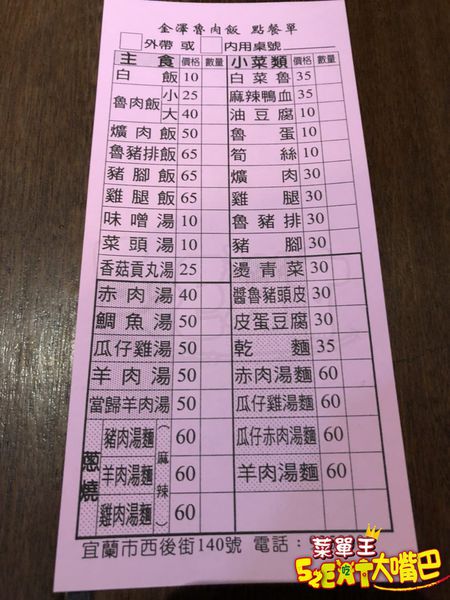 金澤魯肉飯 點餐單
外帶 或 內用桌號
主食 價格 數量 小菜類 價格 數量
白飯 10 白菜魯 35
魯肉飯 小 25 麻辣鴨血 35
大 40 油豆腐 10
爌肉飯 50 魯蛋 10
魯豬排飯 65 筍絲 10
豬腳飯 65 爌肉 30
雞腿飯 65 雞腿 30
味噌湯 10 魯豬排 30
菜頭湯 10 豬腳 30
香菇貢丸湯 25 燙青菜 30
赤肉湯 40 醬魯豬頭皮 30
鯛魚湯 50 皮蛋豆腐 30
瓜仔雞湯 50 乾麵 35
羊肉湯 50 赤肉湯麵 60
當歸羊肉湯 50 瓜仔雞湯麵 60
蔥燒 豬肉湯麵 (麻辣) 60 瓜仔赤肉湯麵 60
羊肉湯麵 60 羊肉湯麵 60
雞肉湯麵 60
宜蘭市西後街140號 電話：
菜單王
SzEAT吃大嘴巴